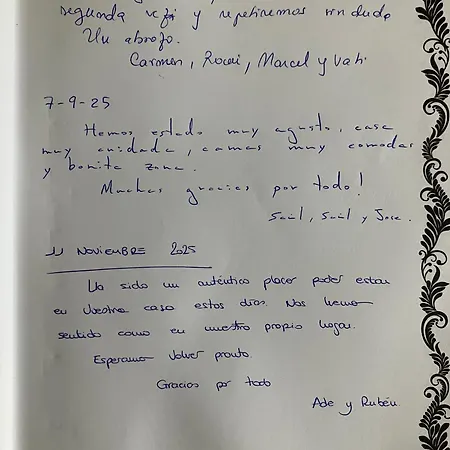 segunda vez y repetiremos sin duda
Un abrazo.
Carmen, Rocío, Marcel y
7-9-25
Hemos estado muy agusto, casa
muy cuidada, camas muy comodas
y bonita zona.
Muchas gracias por todo!
Saúl, Saúl y Jose.
11 NOVIEMBRE 2025
Ha sido un auténtico placer poder estar
en vuestra casa estos días. Nos hemos
sentido como en nuestro propio hogar.
Esperamos volver pronto.
Gracias por todo
Ade y Rubén.